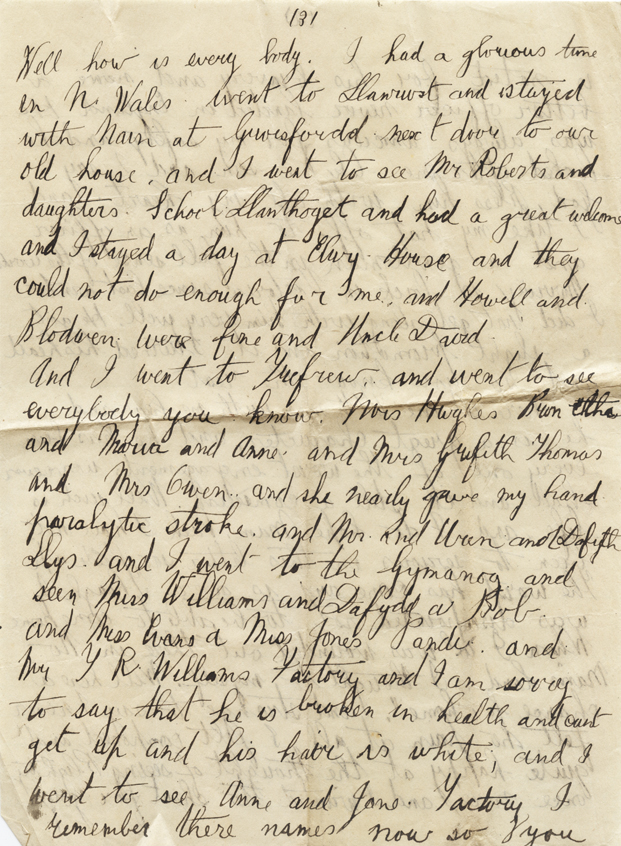 131
Well how is every body. I had a glorious time
in N. Wales went to Llanrwst and stayed
with Nain at Gwrisfordd next door to our
old house, and I went to see Mr Roberts and
daughters. School Llanthoget and had a great welcome
and I stayed a day at Elwy House and they
could not do enough for me, and Howell and
Blodwen were fine and Uncle David.
And I went to Trefrew, and went to see
everybody you know. Mrs Hughes Bron
and Maria and Anne. and Mrs Griffith Thomas
and Mrs Owen. and she nearly gave my hand
paralytic stroke. and Mr. and Uren and Dafyth
Llys. and I went to the Gymanog and
seen Miss Williams and Dafydd a Bob.
and Miss Evans a Miss Jones Pandy. and
Mr T R. Williams Factory and I am sorry
to say that he is broken in health and cant
get up and his hair is white, and I
went to see Anne and Jane. Factory I
remember there names now so if you